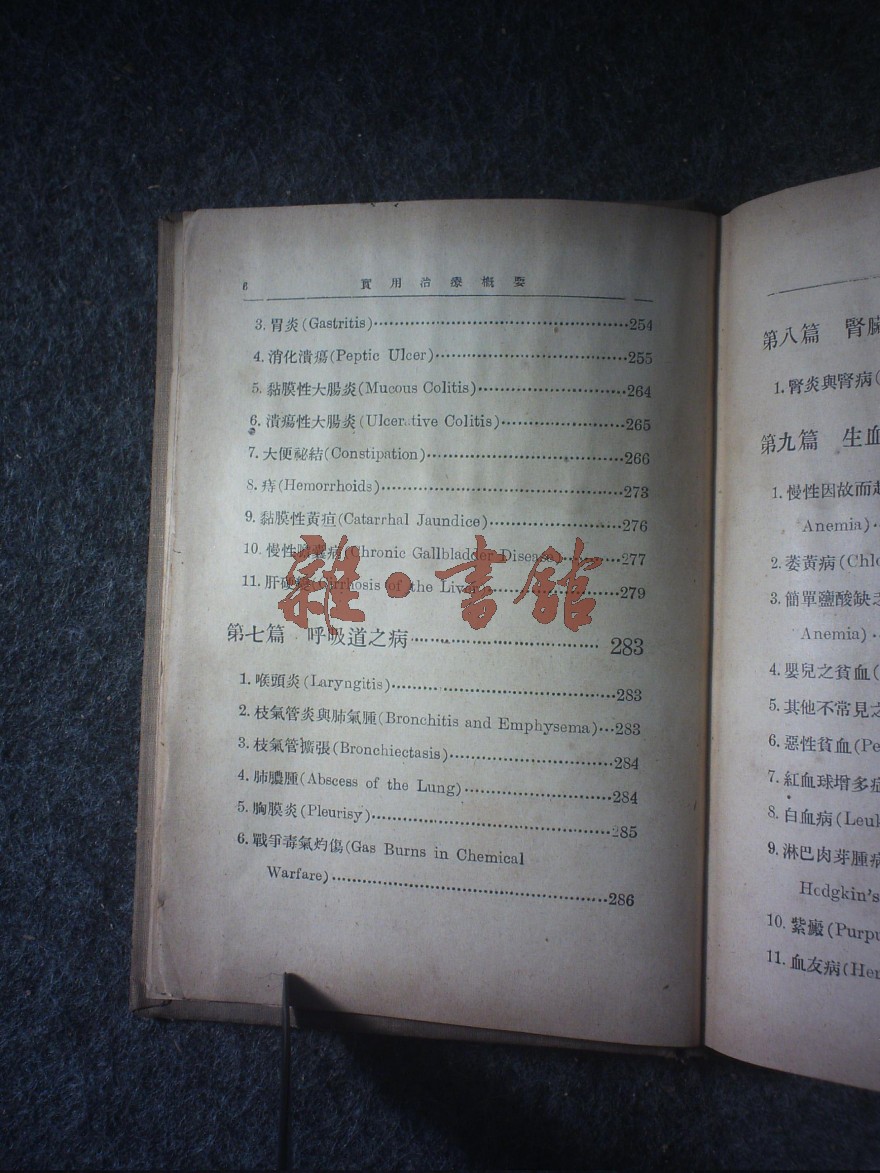 6 實用治療概要
3. 胃炎(Gastritis)……254
4. 消化潰瘍(Peptic Ulcer)……255
5. 黏膜性大腸炎(Mucous Colitis)……264
6. 潰瘍性大腸炎(Ulcerative Colitis)……265
7. 大便祕結(Constipation)……266
8. 痔(Hemorrhoids)……273
9. 黏膜性黃疸(Catarrhal Jaundice)……276
10. 慢性膽囊病(Chronic Gallbladder Disease)……277
11. 肝硬變(Cirrhosis of the Liver)……279
雜·書館
第七篇 呼吸道之病……283
1. 喉頭炎(Laryngitis)……283
2. 枝氣管炎與肺氣腫(Bronchitis and Emphysema)…283
3. 枝氣管擴張(Bronchiectasis)……284
4. 肺膿腫(Abscess of the Lung)……284
5. 胸膜炎(Pleurisy)……285
6. 戰爭毒氣灼傷(Gas Burns in Chemical
Warfare)……286
第八篇 腎臟
1. 腎炎與腎病(
第九篇 生血
1. 慢性因故而起
Anemia)
2. 萎黃病(Chlo
3. 簡單鹽酸缺乏
Anemia)
4. 嬰兒之貧血(
5. 其他不常見之
6. 惡性貧血(Pe
7. 紅血球增多症
8. 白血病(Leuk
9. 淋巴肉芽腫病
Hodgkin's
10. 紫癜(Purpu
11. 血友病(Her